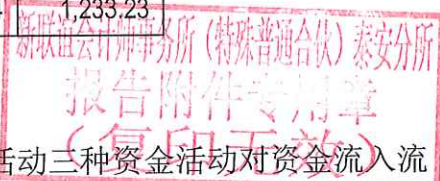 1,233.23
新联谊会计师事务所(特殊普通合伙)泰安分所
报告附件专用章
(复印无效)
活动三种资金活动对资金流入流